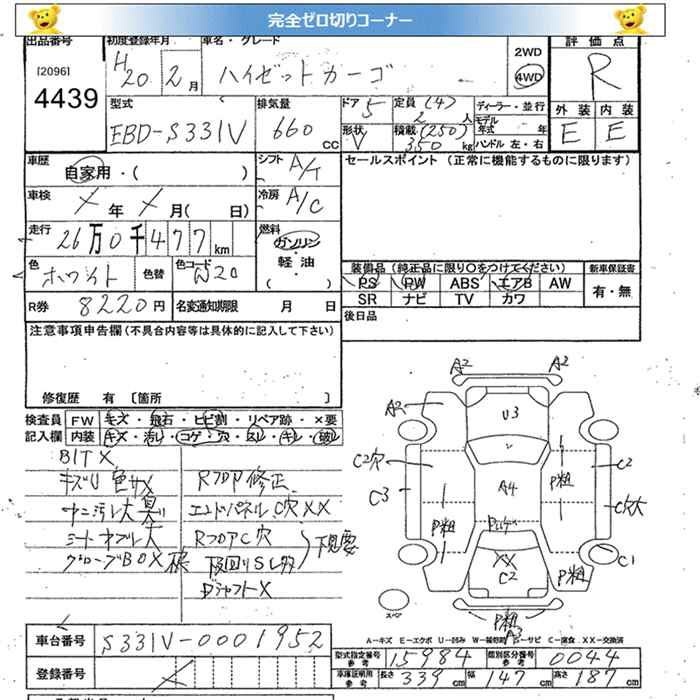 完全ゼロ切りコーナー
出品番号 初度登録年月 車名・グレード 2WD 評価点
[2096] H20 2月 ハイゼットカーゴ 4WD R
4439
型式 排気量 ドア 定員 (4) ディーラー・並行 外装 内装
EBD-S331V 660 CC 5 2人 モデル年式 年 E E
形状 V 積載 (250) 350 kg ハンドル 左・右
車歴 シフト A/T セールスポイント (正常に機能するものに限ります)
自家用・( )
車検 冷房 A/C
X年X月( 日)
走行 燃料
26万0千477km ガソリン
軽油
色 色替 色コード ( ) 装備品 (純正品に限り○をつけてください) 新車保証書
ホワイト W20 PS PW ABS エアB AW 有・無
SR ナビ TV カワ
R券 8220円 名変通知期限 月 日 後日品
注意事項申告欄 (不具合内容等は具体的に記入して下さい)
修復歴 有 〔箇所 〕
検査員 FW キズ・飛石・ヒビ割・リペア跡・×要
記入欄 内装 キズ・汚レ・コゲ・穴・スレ・キレ・破レ
BIT X
キズU 色サX Rフロア修正
ナニ汚レ大臭い エンドパネルC穴XX
シートオプル大 RフロアC穴 下見要
グローブBOX 下回りSL
DシャフトX
A2 A2
A2 U3
C2穴 C2
C3 A4 P粗 C穴大
P粗
XX C2 C1
P粗
スペア P粗 A3
A-キズ E-エクボ U-凹み W-補修跡 S-サビ C-腐食 XX-交換済
車台番号 S331V-0001952
型式指定番号 参考 15984 類別区分番号 参考 0044
登録番号 X 車庫証明用 参考 長さ 339cm 幅 147cm 高さ 187cm